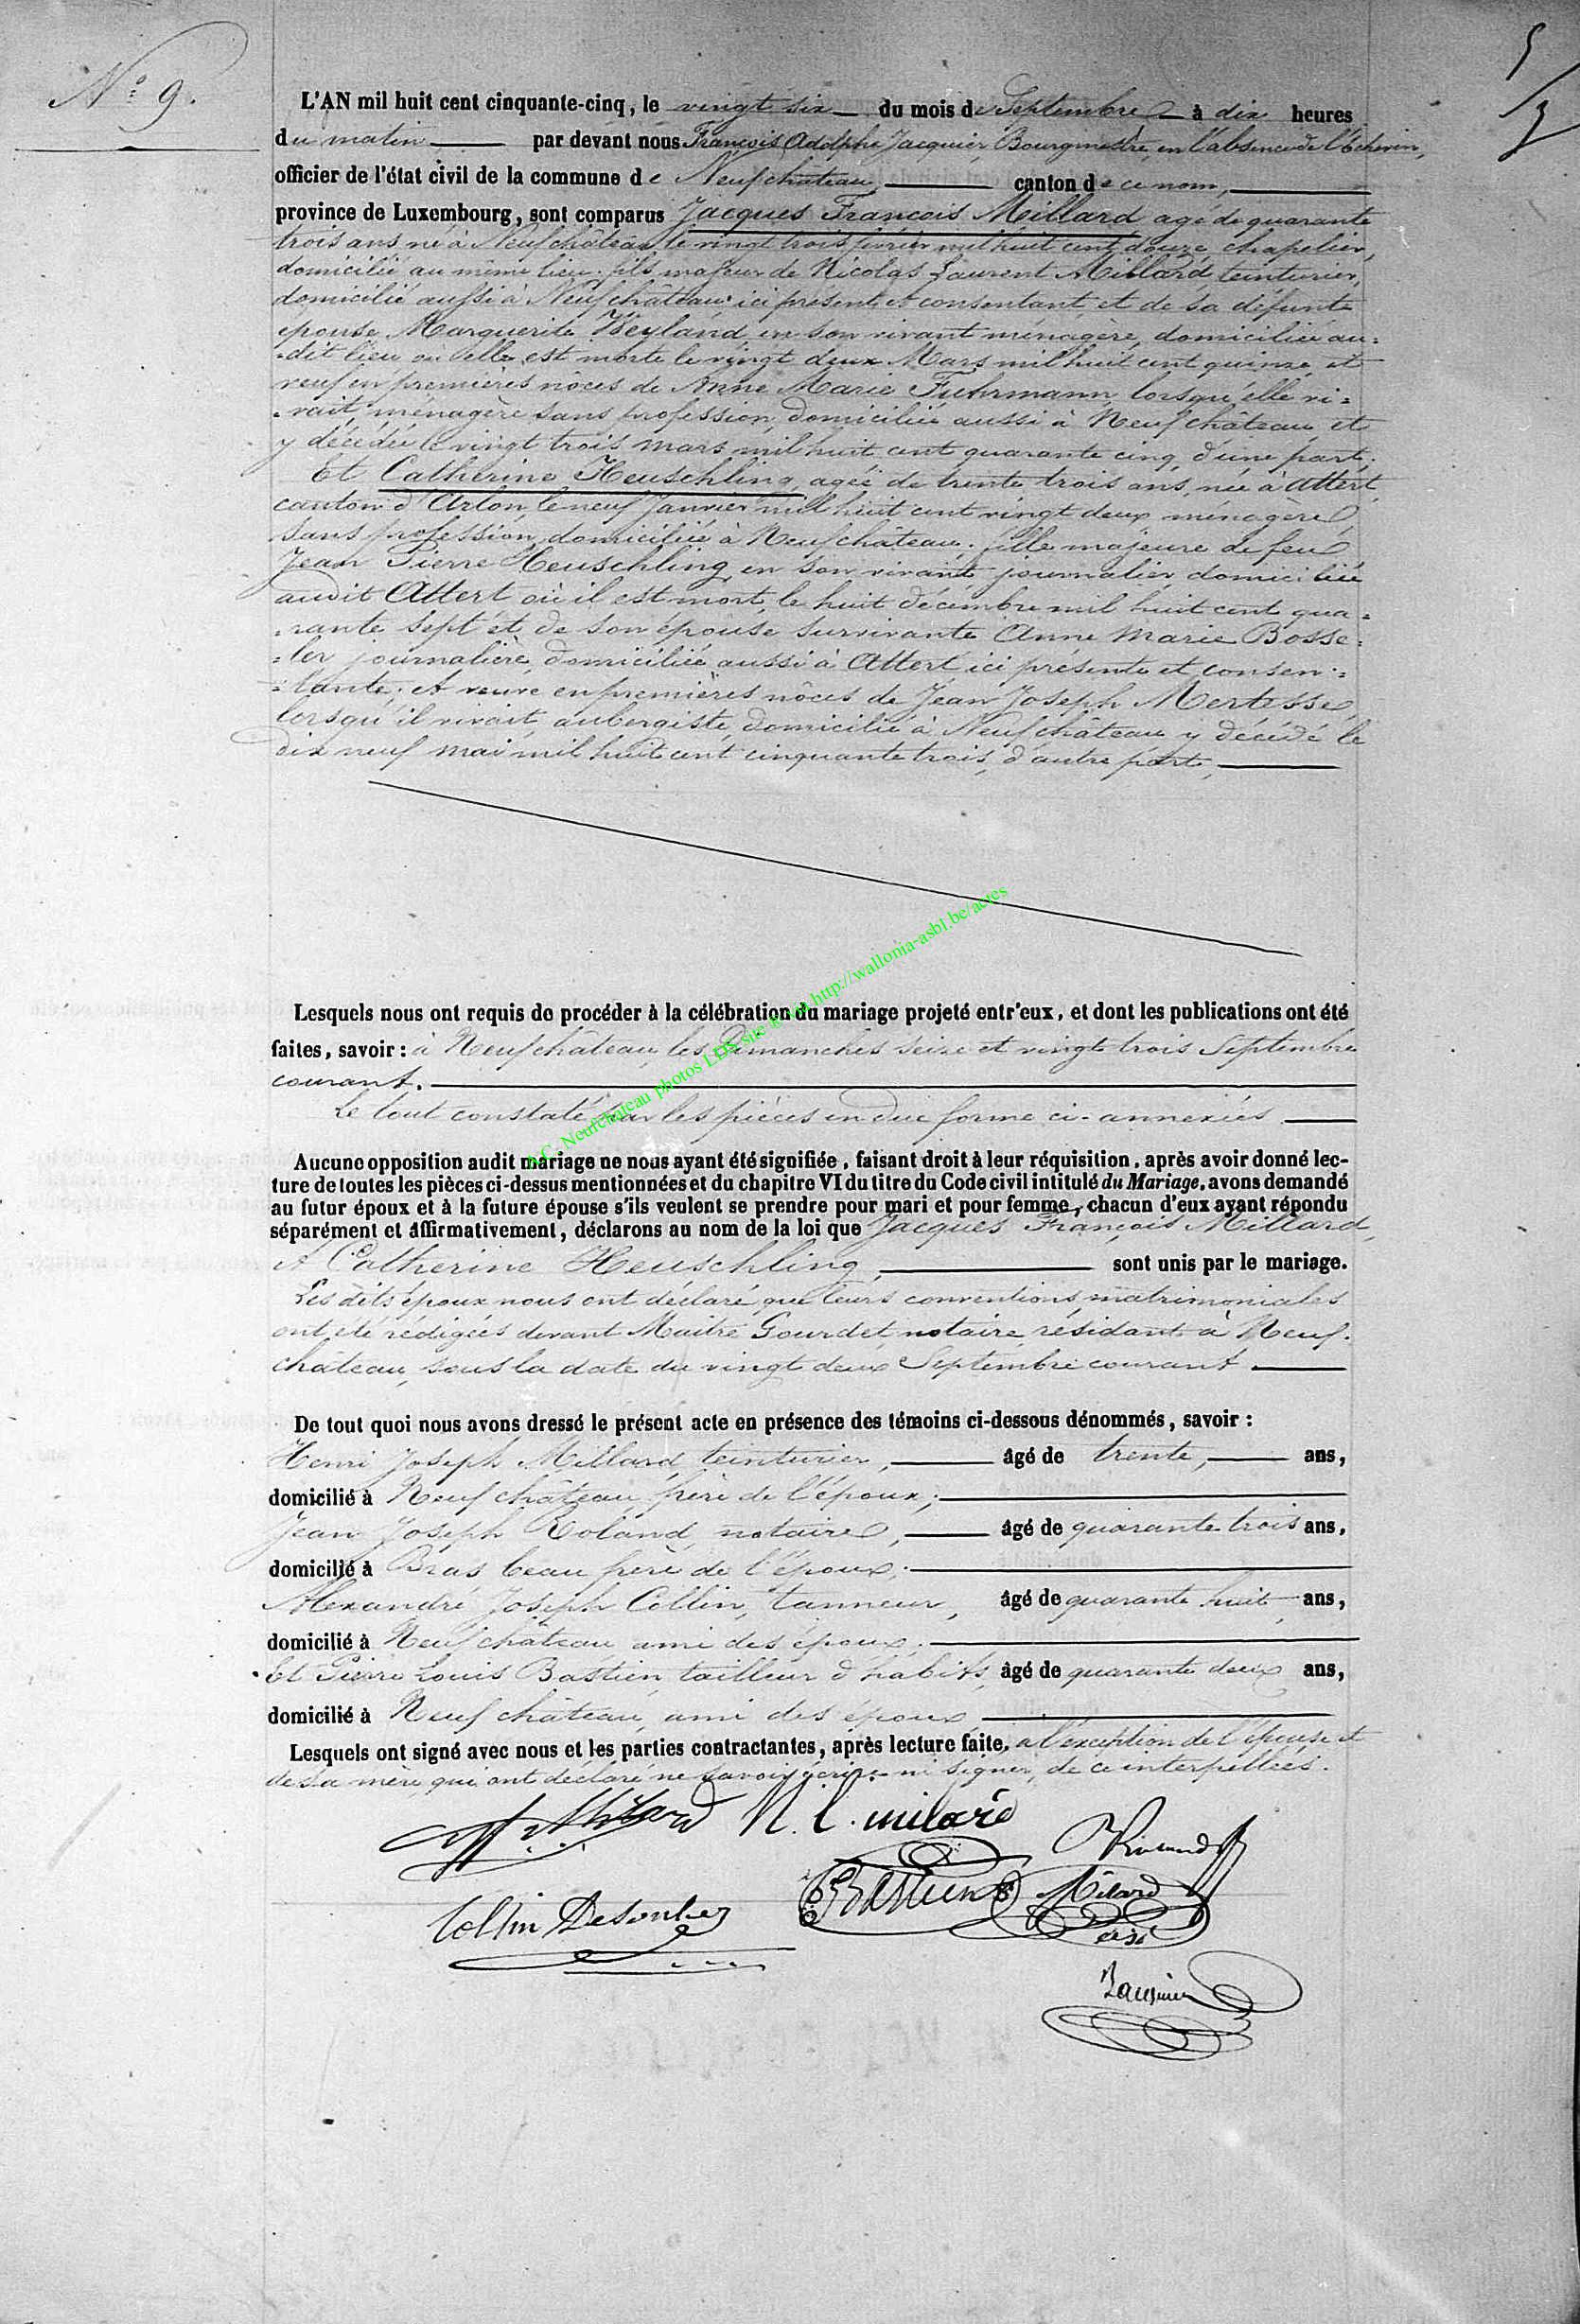 N° 9.
5
L'AN mil huit cent cinquante-cinq, le vingt six du mois de Septembre à dix heures
du matin par devant nous François Adolphe Jacquier, Bourgmestre, en l'absence de l'Echevin,
officier de l'état civil de la commune de Neufchâteau, canton de ce nom,
province de Luxembourg, sont comparus Jacques François Millard agé de quarante
trois ans né à Neufchâteau le vingt trois février mil huit cent douze, chapelier,
domicilié au même lieu, fils majeur de Nicolas Laurent Millard, teinturier,
domicilié aussi à Neufchâteau ici présent et consentant, et de sa défunte
épouse Marguerite Weyland, en son vivant ménagère, domiciliée au:
=dit lieu où elle est morte le vingt deux Mars mil huit cent quinze, et
veuf en premières nôces de Anne Marie Fuhrmann, lorsqu'elle vi=
=vait, ménagère sans profession, domiciliée aussi à Neufchâteau et
y décédée le vingt trois mars mil huit cent quarante cinq, d'une part;
Et Catherine Heuschling, agée de trente trois ans, née à Attert,
canton d'Arlon, le neuf Janvier mil huit cent vingt deux, ménagère
sans profession, domiciliée à Neufchâteau, fille majeure de feu
Jean Pierre Heuschling, en son vivant, journalier, domicilié
audit Attert où il est mort, le huit décembre mil huit cent qua=
=rante sept et de son épouse survivante Anne Marie Bosse=
=ler journalière, domiciliée aussi à Attert, ici présente et consen=
=tante; et veuve en premières nôces de Jean Joseph Mertesse,
lorsqu'il vivait, aubergiste, domicilié à Neufchâteau y décédé le
dix neuf mai mil huit cent cinquante trois, d'autre part,
Lesquels nous ont requis de procéder à la célébration du mariage projeté entr'eux, et dont les publications ont été
faites, savoir : à Neufchâteau, les Dimanches seize et vingt trois Septembre
courant.
Le tout constaté par les pièces en due forme ci-annexées
A.C. Neufchateau photos LDS site e via http://wallonia-asbl.be/actes
Aucune opposition audit mariage ne nous ayant été signifiée, faisant droit à leur réquisition, après avoir donné lec-
ture de toutes les pièces ci-dessus mentionnées et du chapitre VI du titre du Code civil intitulé du Mariage, avons demandé
au futur époux et à la future épouse s'ils veulent se prendre pour mari et pour femme, chacun d'eux ayant répondu
séparément et affirmativement, déclarons au nom de la loi que Jacques François Millard,
et Catherine Heuschling, sont unis par le mariage.
Les dits époux nous ont déclaré que leurs conventions matrimoniales
ont été rédigées devant Maitre Gourdet, notaire, résidant à Neuf.
château, sous la date du vingt deux Septembre courant.
De tout quoi nous avons dressé le présent acte en présence des témoins ci-dessous dénommés, savoir :
Henri Joseph Millard, teinturier, âgé de trente, ans,
domicilié à Neufchâteau, frère de l'époux;
Jean Joseph Roland, notaire, âgé de quarante trois ans,
domicilié à Bras, beau frère de l'époux;
Alexandre Joseph Collin, tanneur, âgé de quarante huit ans,
domicilié à Neufchâteau, ami des époux;
Et Pierre Louis Bastien, tailleur d'habits, âgé de quarante deux ans,
domicilié à Neufchâteau, ami des époux
Lesquels ont signé avec nous et les parties contractantes, après lecture faite, à l'exception de l'épouse et
de sa mère, qui ont déclaré ne savoir écrire ni signer, de ce interpellées.
N. L. milard
Bastien
Milard
Collin
Jacquier